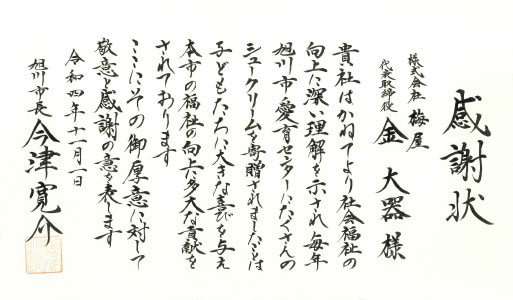 感謝状
株式会社 梅屋
代表取締役
金 大器 様
貴社はかねてより社会福祉の
向上に深い理解を示され毎年
旭川市愛育センターにたくさんの
シュークリームを寄贈されましたことは
子どもたちに大きな喜びを与え
本市の福祉の向上に多大な貢献を
されております
ここにその御厚意に対して
敬意と感謝の意を表します
令和四年十一月一日
旭川市長 今津寛介